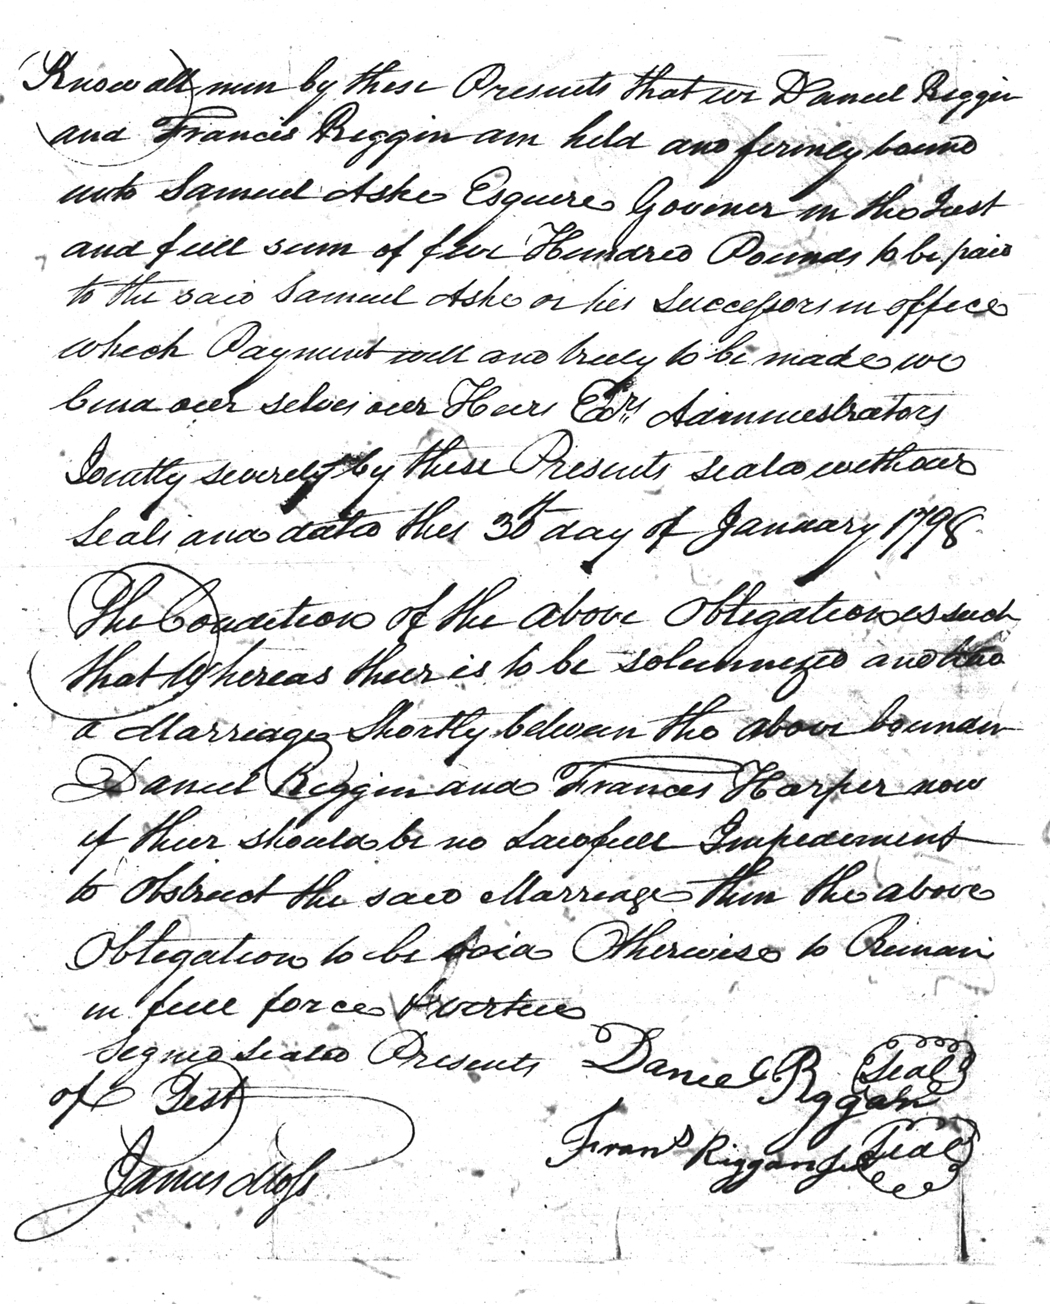 Know all men by these Presents that we Daniel Riggin
and Francis Riggin am held and firmley bound
unto Samuel Ashe Esquere Govener in the Just
and full sum of five Hundred Pounds to be paid
to the said Samuel Ashe or his Successors in office
which Payment well and truly to be made we
bind our selves our Heirs Exrs Administrators
Jointly severely by these Presents seald with our
Seals and dated this 30th day of January 1798
The Condition of the above Obligation is such
that Whereas their is to be solumnized and had
a Marriage Shortly betwean the above bounden
Daniel Riggin and Frances Harper now
if their should be no Lawfull Impediment
to Obstruct the said Marriage then the above
Obligation to be void Otherwise to Remain
in full force & vertue
Signed Sealed Presents
of Test
Daniel Riggan Seal
Frans Riggan Seal
James Moss